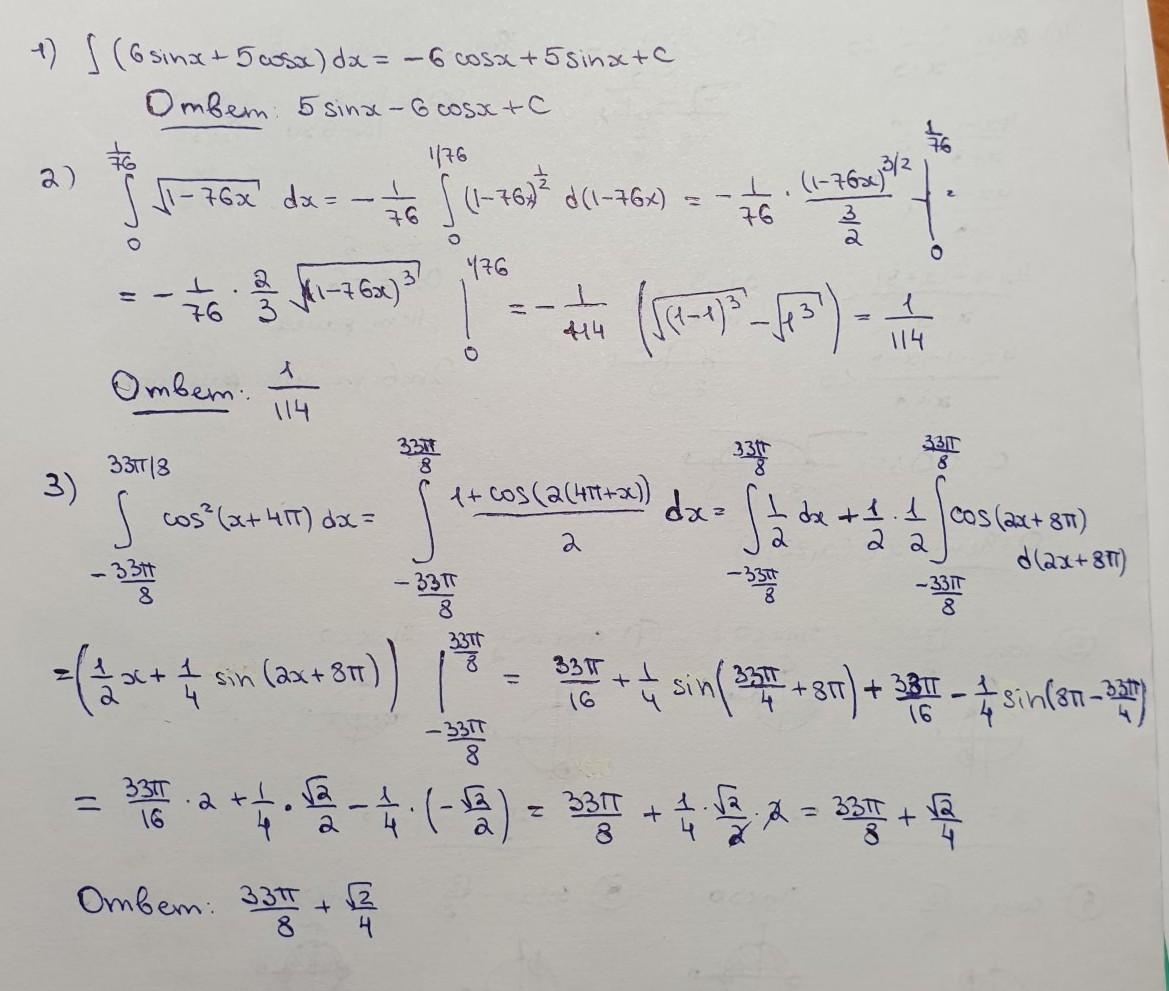 1) ∫ (6 sinx + 5 cosx) dx = -6 cosx + 5 sinx + C
Ответ: 5 sinx - 6 cosx + C
2) ∫₀^{1/76} √(1-76x) dx = -1/76 ∫₀^{1/76} (1-76x)^{1/2} d(1-76x) = -1/76 · (1-76x)^{3/2} / (3/2) |₀^{1/76} =
= -1/76 · 2/3 √((1-76x)³) |₀^{1/76} = -1/114 (√((1-1)³) - √(1³)) = 1/114
Ответ: 1/114
3) ∫_{-33π/8}^{33π/8} cos²(x+4π) dx = ∫_{-33π/8}^{33π/8} (1+cos(2(4π+x)))/2 dx = ∫_{-33π/8}^{33π/8} 1/2 dx + 1/2 · 1/2 ∫_{-33π/8}^{33π/8} cos(2x+8π) d(2x+8π)
= (1/2 x + 1/4 sin(2x+8π)) |_{-33π/8}^{33π/8} = 33π/16 + 1/4 sin(33π/4 + 8π) + 33π/16 - 1/4 sin(8π - 33π/4)
= 33π/16 · 2 + 1/4 · √2/2 - 1/4 · (-√2/2) = 33π/8 + 1/4 · √2/2 · 2 = 33π/8 + √2/4
Ответ: 33π/8 + √2/4